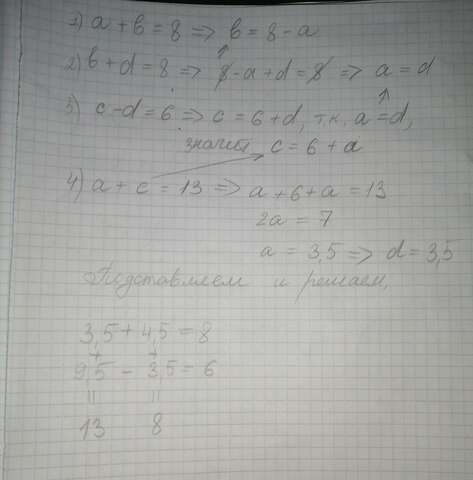 1) a + b = 8 => b = 8 - a
2) b + d = 8 => 8 - a + d = 8 => a = d
3) c - d = 6 => c = 6 + d, т.к. a = d,
значит c = 6 + a
4) a + c = 13 => a + 6 + a = 13
2a = 7
a = 3,5 => d = 3,5
Подставляем и решаем,
3,5 + 4,5 = 8
+ +
9,5 - 3,5 = 6
= =
13 8